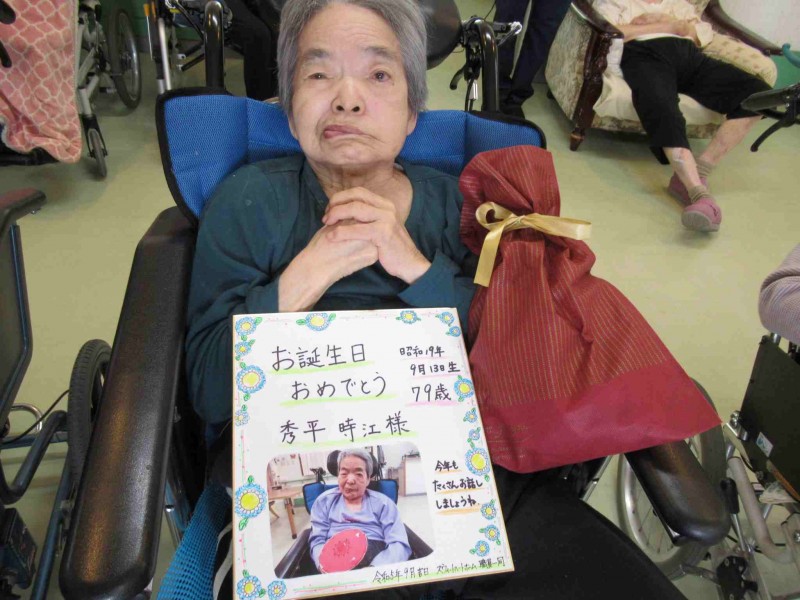 お誕生日
おめでとう
昭和19年
9月13日生
79歳
秀平 時江様
今年も
たくさんお話し
しましょうね
令和5年9月吉日
職員一同